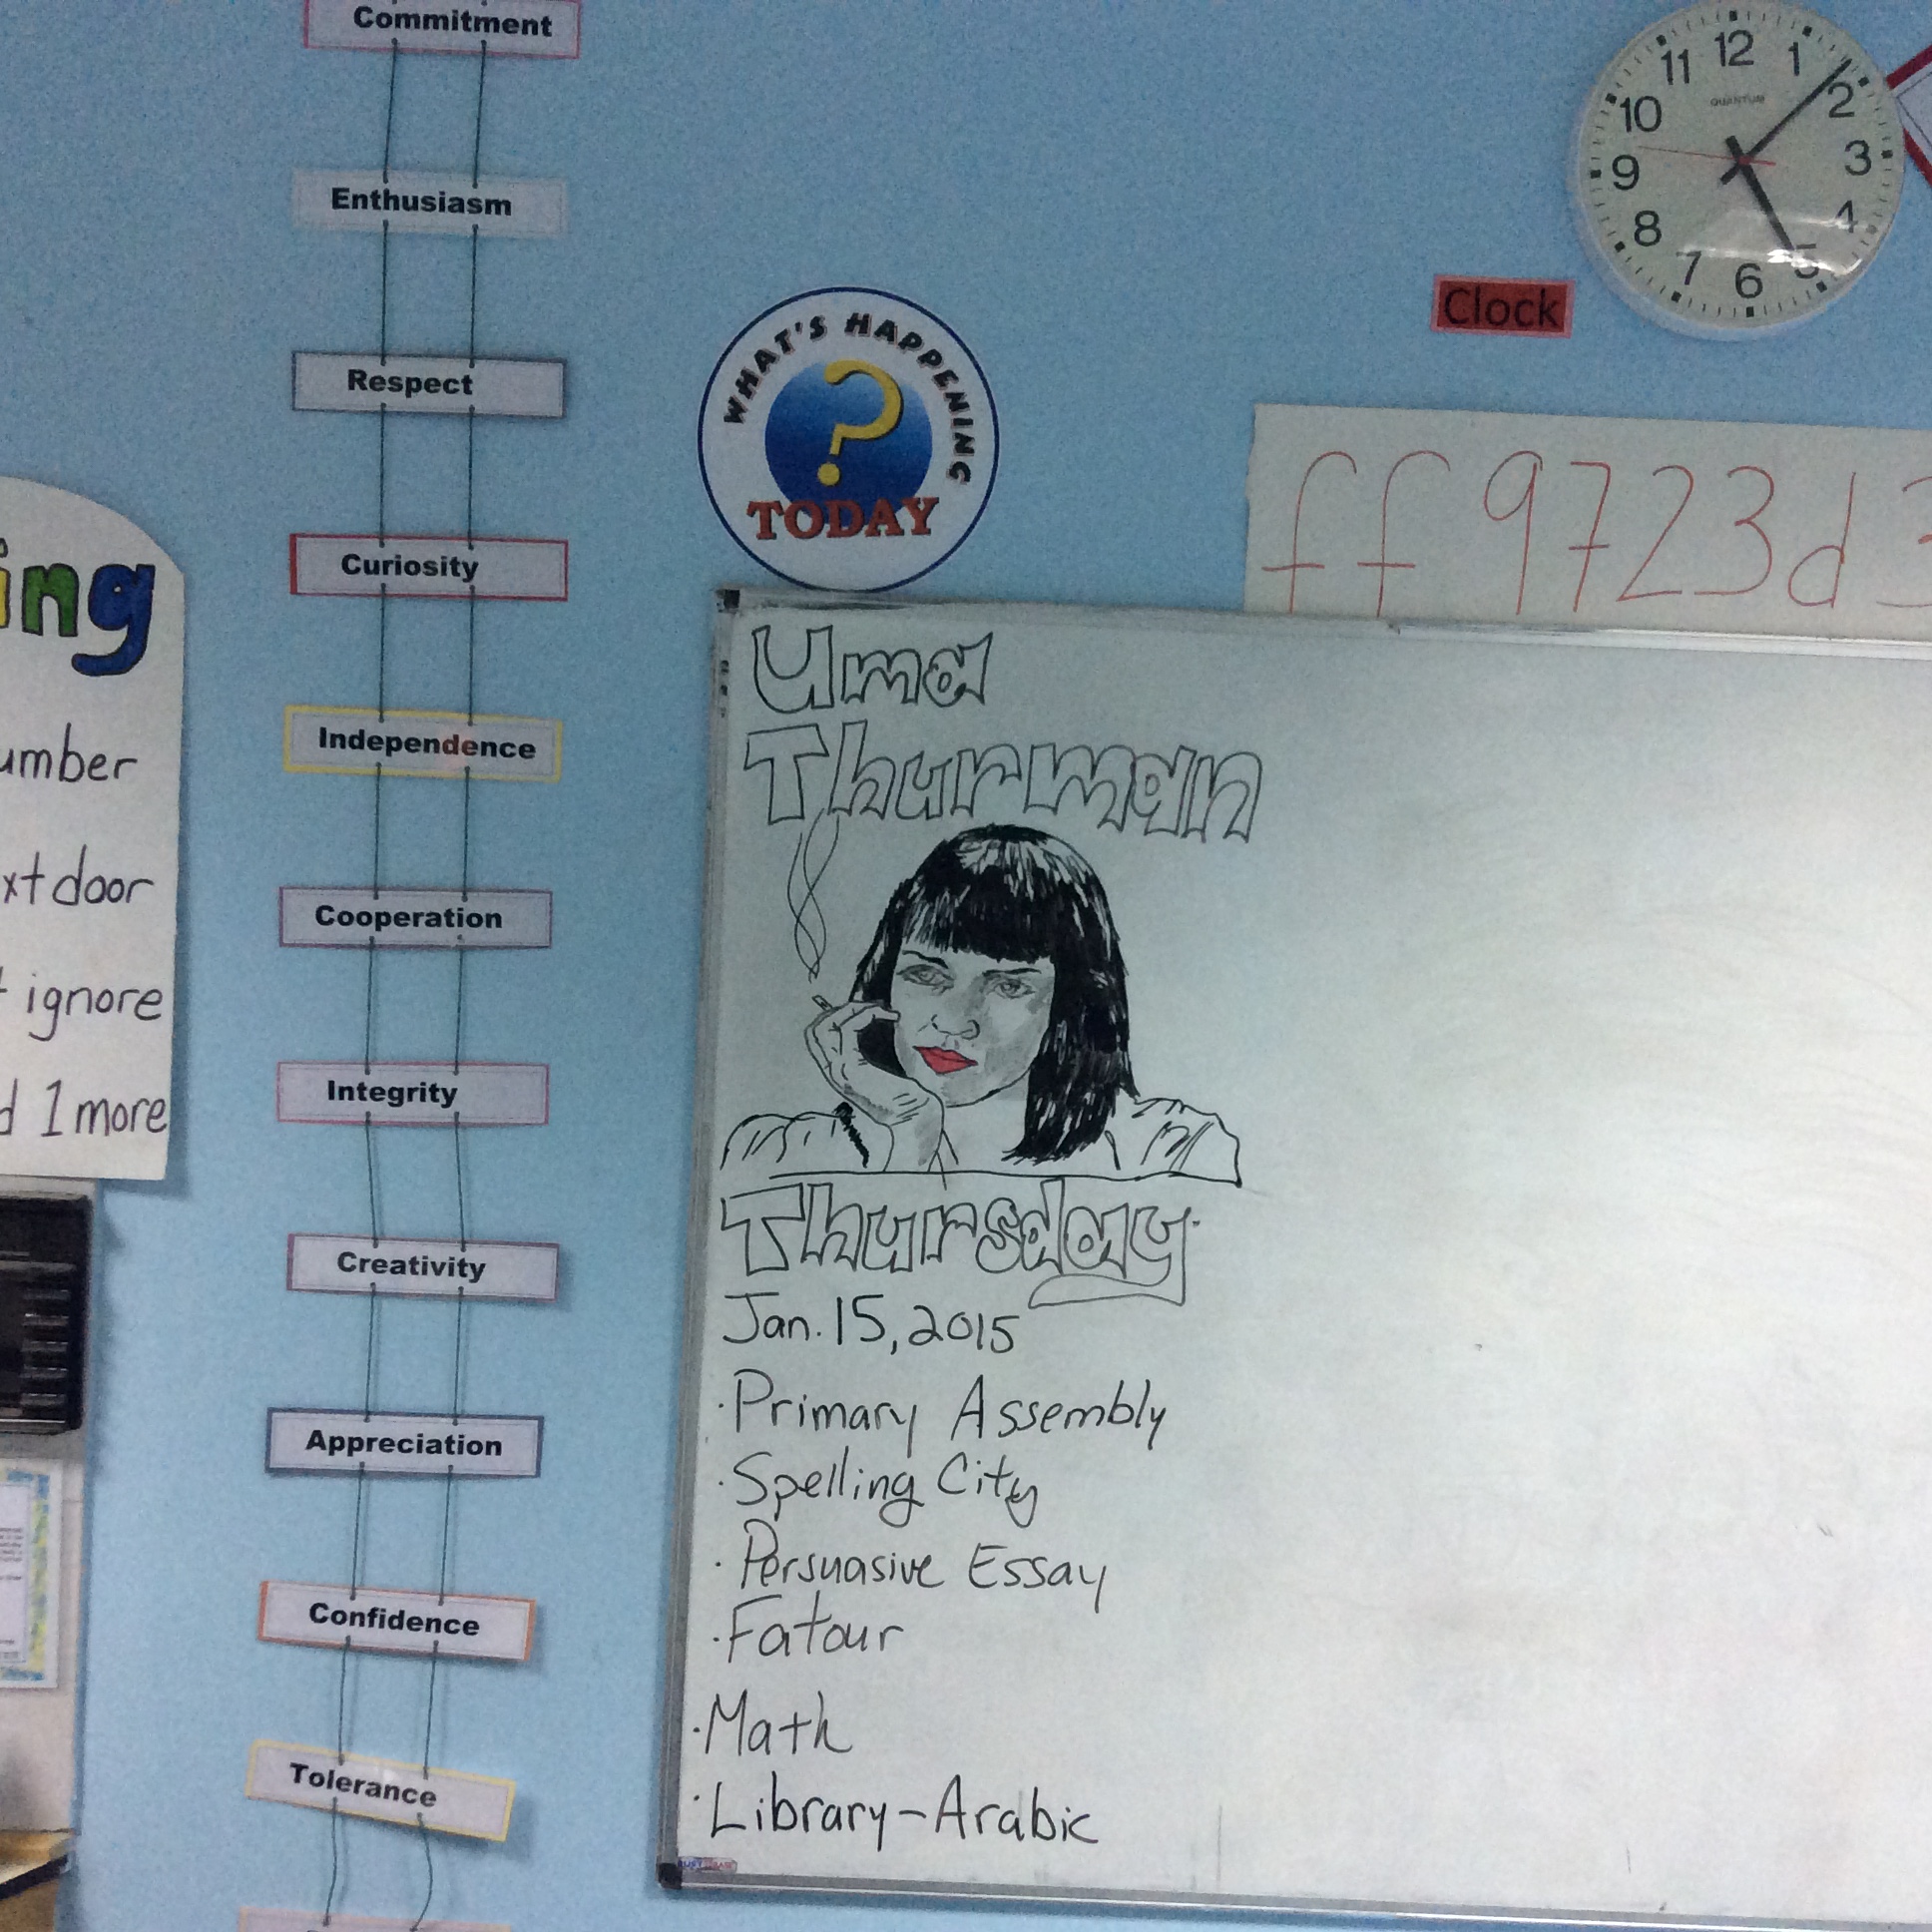 Commitment
Enthusiasm
Respect
Curiosity
Independence
Cooperation
Integrity
Creativity
Appreciation
Confidence
Tolerance
ing
umber
xt door
ignore
d 1 more
WHAT'S HAPPENING
?
TODAY
11 12 1
10 2
9 3
8 4
7 6 5
QUANTUM
Clock
ff9723d3
Uma
Thurman
Thursday
Jan. 15, 2015
· Primary Assembly
· Spelling City
· Persuasive Essay
· Fatour
· Math
· Library-Arabic